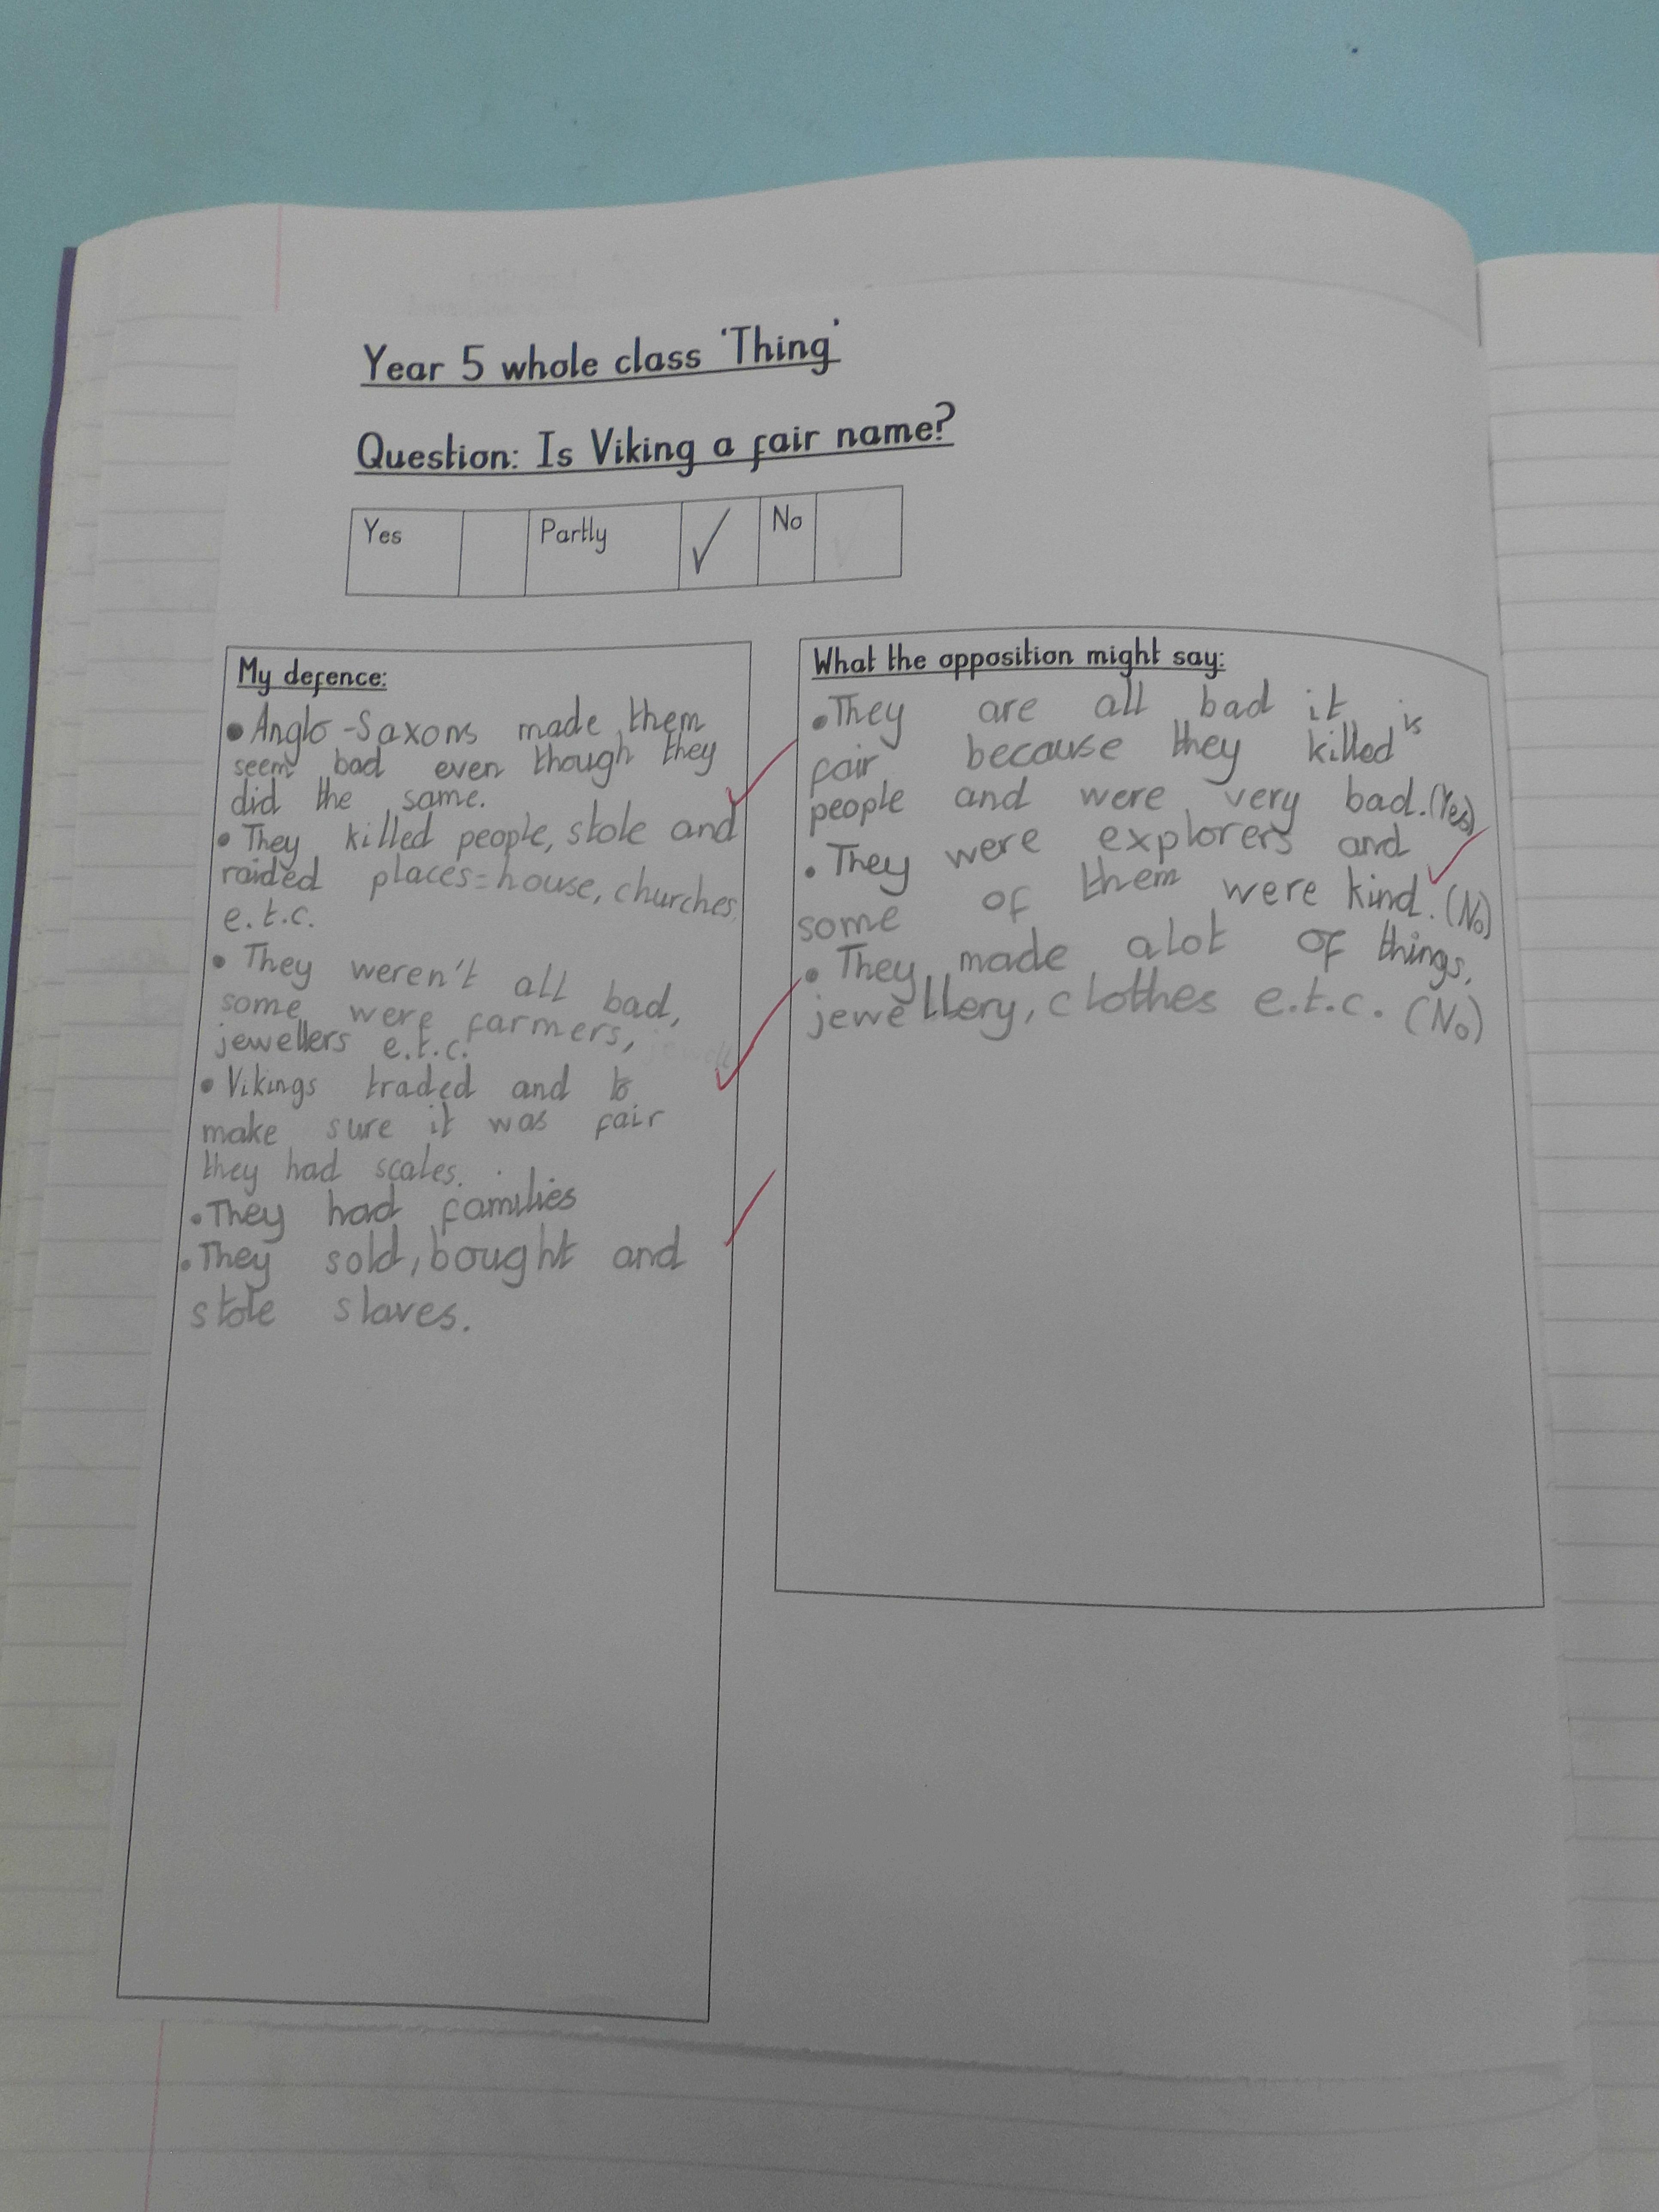 Year 5 whole class 'Thing'
Question: Is Viking a fair name?
Yes Partly ✓ No
My defence:
• Anglo-Saxons made them
seem bad even though they
did the same.
• They killed people, stole and
raided places = house, churches
e.t.c.
• They weren't all bad,
some were farmers,
jewellers e.t.c.
• Vikings traded and to
make sure it was fair
they had scales.
• They had families
• They sold, bought and
stole slaves.
What the opposition might say:
• They are all bad it is
fair because they killed
people and were very bad. (Yes)
• They were explorers and
some of them were kind. (No)
• They made alot of things,
jewellery, clothes e.t.c. (No)